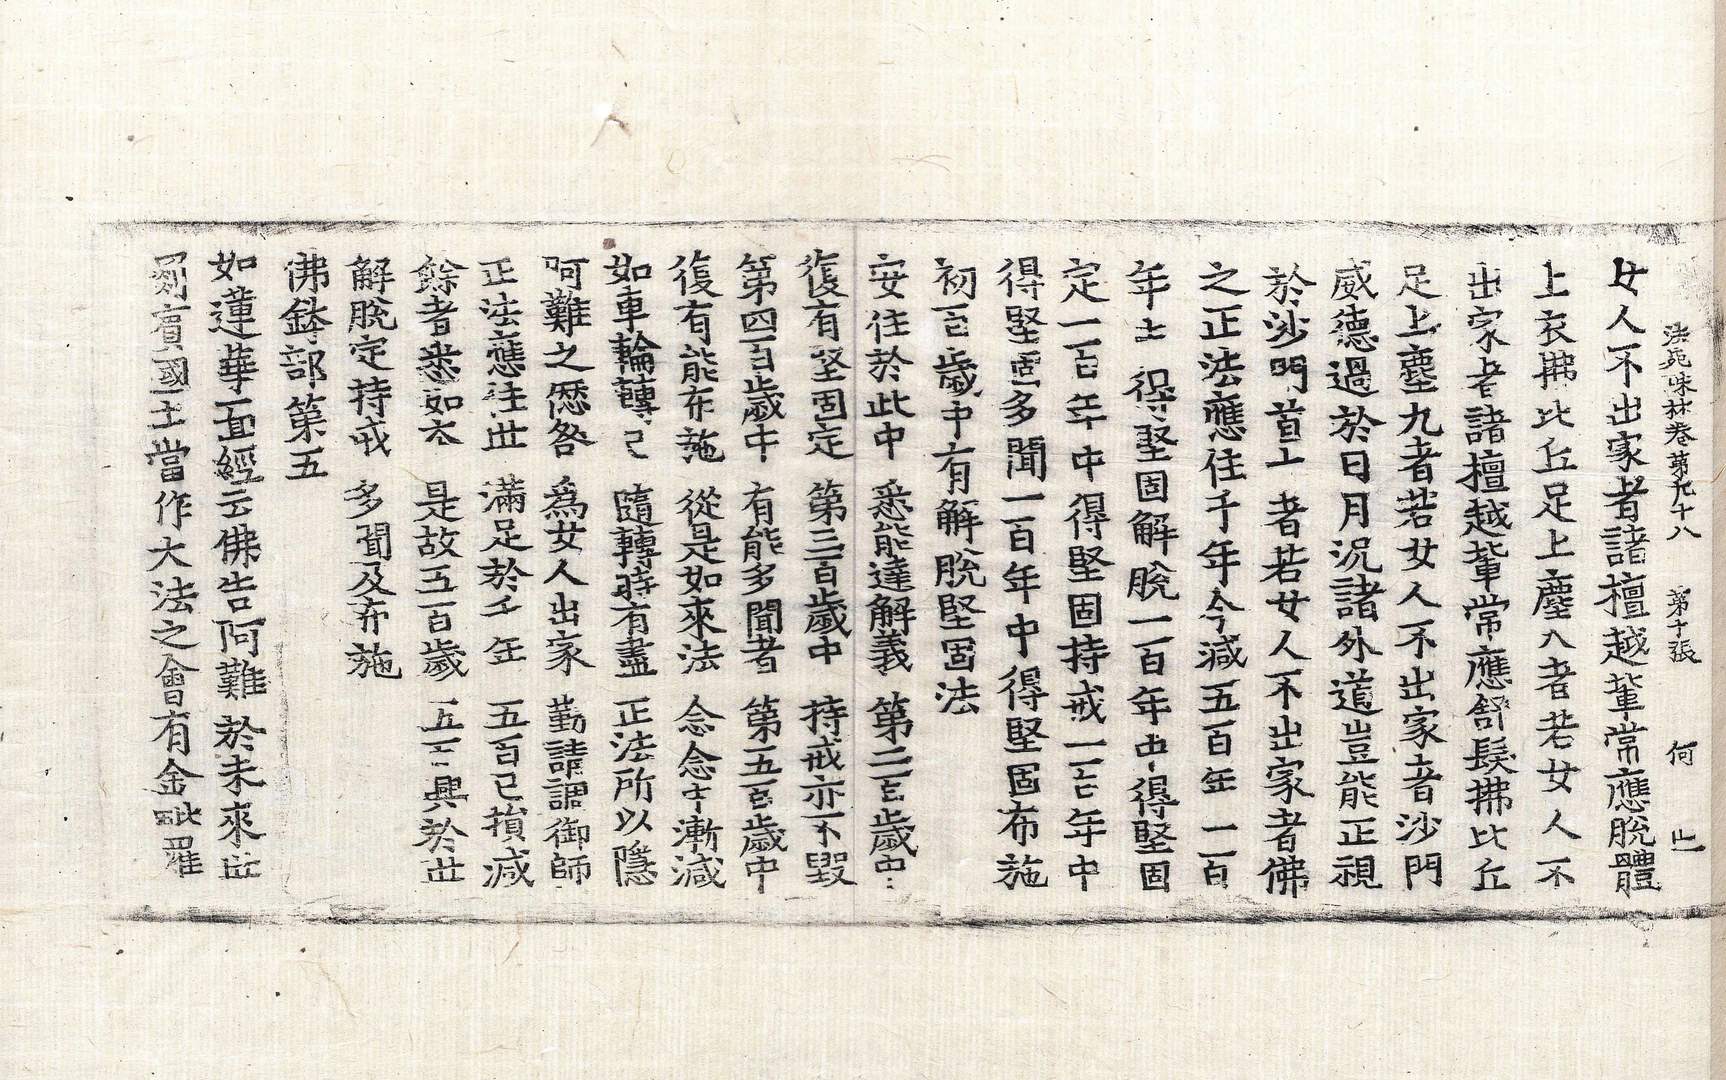 法苑珠林卷第九十八 第十張 何
女人不出家者諸檀越輩常應脫體
上衣拂比丘足上塵八者若女人不
出家者諸檀越輩常應舒髮拂比丘
足上塵九者若女人不出家者沙門
威德過於日月況諸外道豈能正視
於沙門首上者若女人不出家者佛
之正法應住千年今減五百年一百
年 得堅固解脫一百年中得堅固
定一百年中得堅固持戒一百年中
得堅固多聞一百年中得堅固布施
初百歲中有解脫堅固法
安住於此中 悉能達解義 第二百歲中
復有堅固定 第三百歲中 持戒亦不毀
第四百歲中 有能多聞者 第五百歲中
復有能布施 從是如來法 念念中漸減
如車輪轉已 隨轉時有盡 正法所以隱
阿難之愆咎 為女人出家 勸請調御師
正法應住世 滿足於千年 五百已損減
餘者悉如本 是故五百歲 五 興於世
解脫定持戒 多聞及布施
佛鉢部第五
如蓮華面經云佛告阿難於未來世
罽賓國土當作大法之會有金毗羅